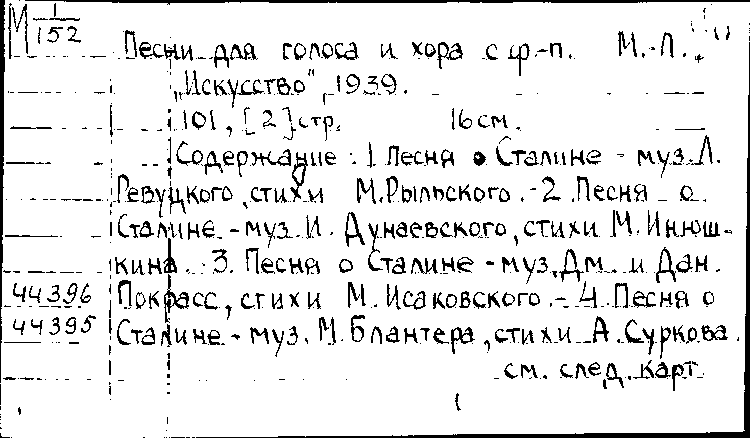 М 1/152
Песни для голоса и хора с ф-п. М.-Л.,
„Искусство", 1939.
101, [2] стр. 16 см.
Содержание: 1. Песня о Сталине - муз. Л.
Ревуцкого, стихи М. Рыльского. - 2. Песня о
Сталине - муз. И. Дунаевского, стихи М. Инюш-
кина. - 3. Песня о Сталине - муз. Дм. и Дан.
44396 Покрасс, стихи М. Исаковского. - 4. Песня о
44395 Сталине - муз. М. Блантера, стихи А. Суркова.
см. след. карт.